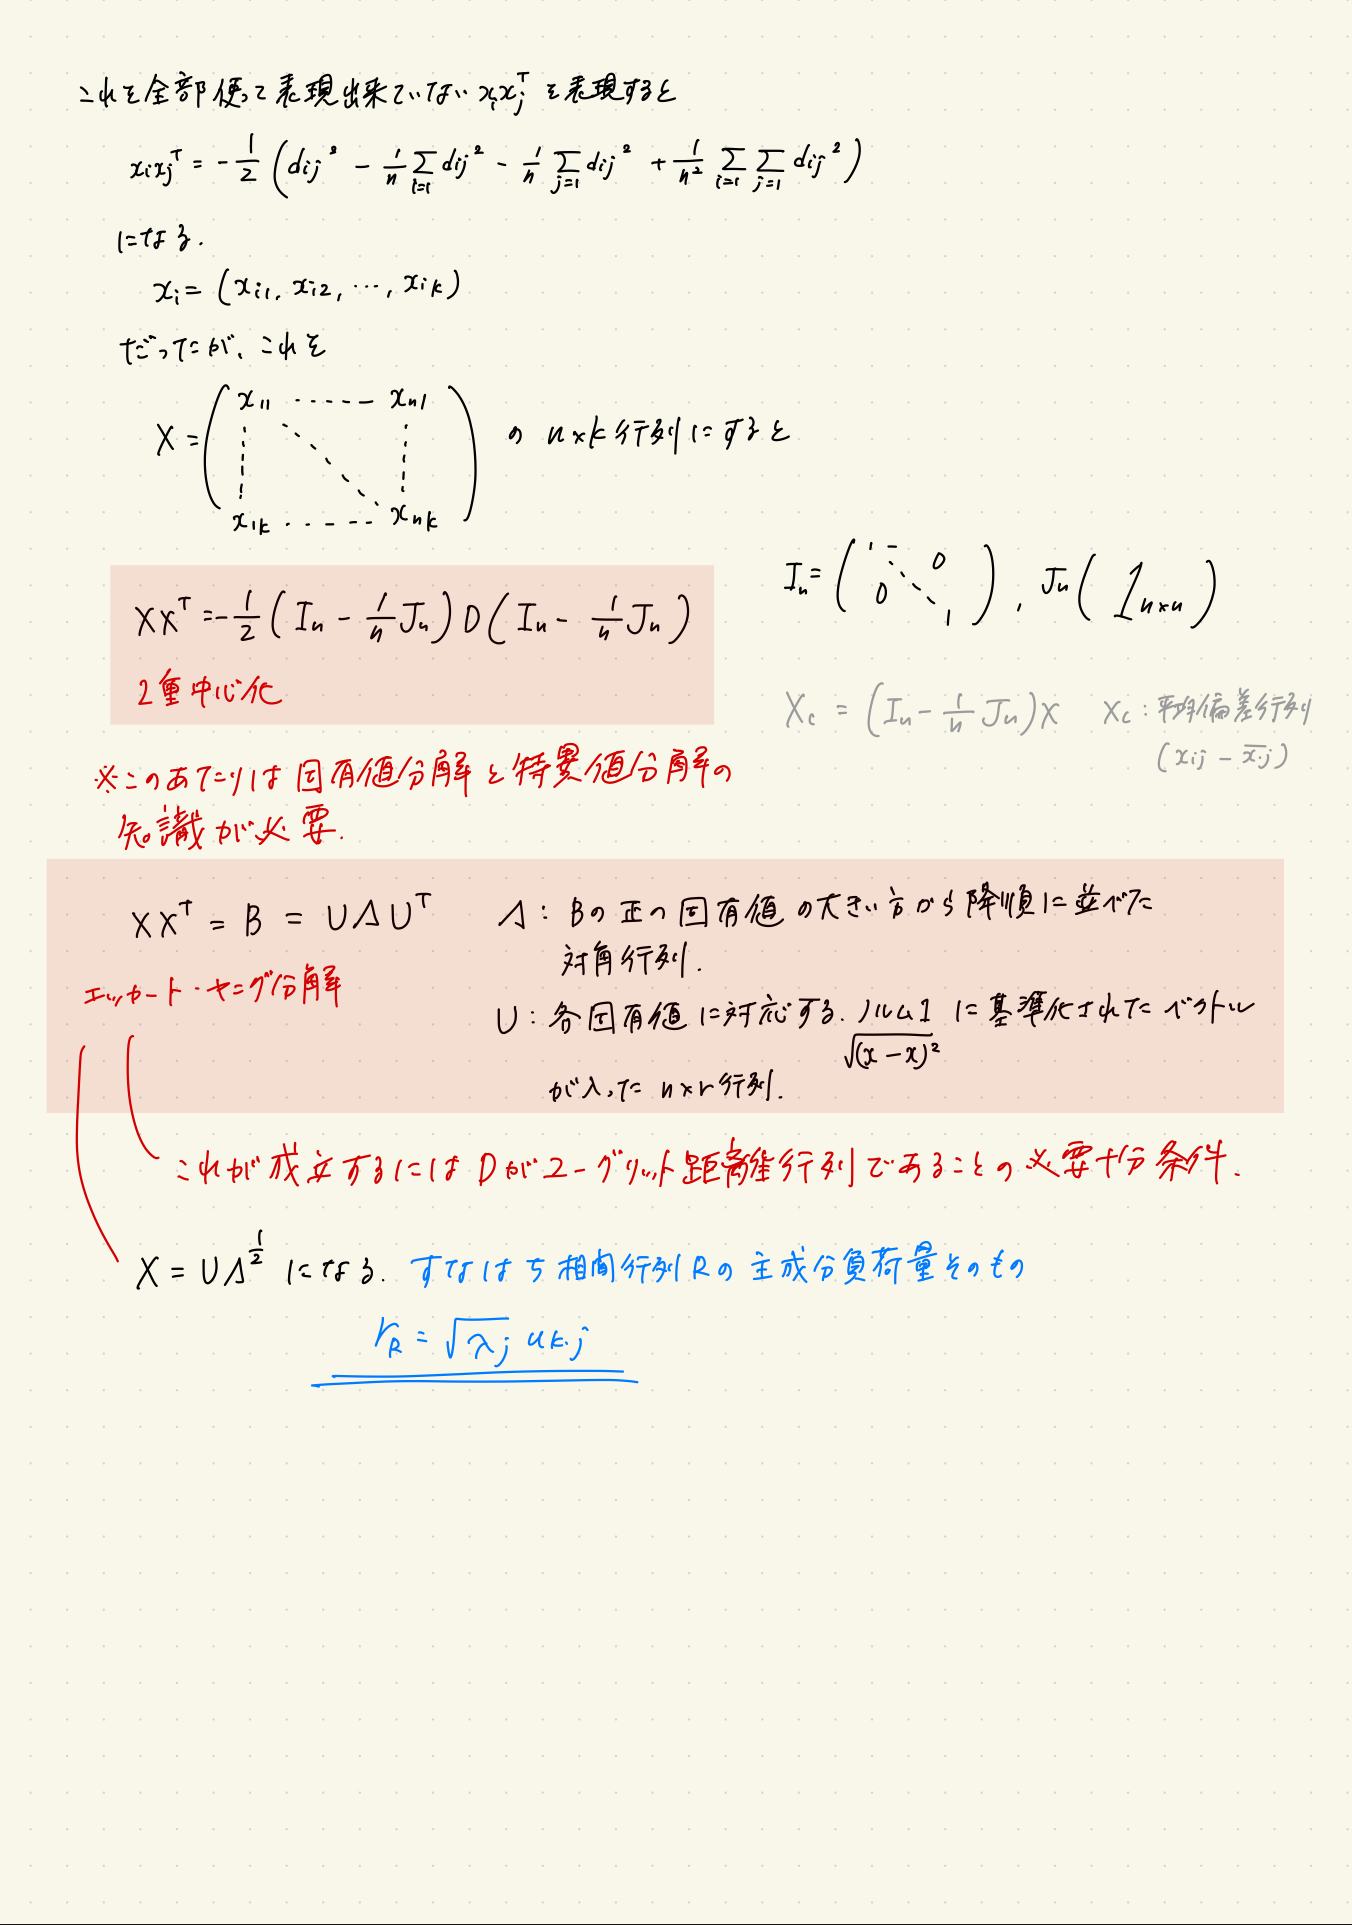 これを全部使って表現出来ていない xᵢxⱼᵀ を表現すると
xᵢxⱼᵀ = -1/2 ( dij² - 1/n Σ_{i=1} dij² - 1/n Σ_{j=1} dij² + 1/n² Σ_{i=1} Σ_{j=1} dij² )
になる.
xᵢ = (xi1, xi2, ..., xik)
だったが、これを
X = ( x11 ------ xn1
x1k ------ xnk ) の n×k行列にすると
In = ( 1 - 0
0 1 ) , Jn ( 1n×n )
XXᵀ = -1/2 ( In - 1/n Jn ) D ( In - 1/n Jn )
2重中心化
Xc = (In - 1/n Jn)X Xc : 平均偏差行列
(xij - x̄.j)
※このあたりは固有値分解と特異値分解の
知識が必要.
XXᵀ = B = UΛUᵀ Λ: Bの正の固有値の大きい方から降順に並べた
対角行列.
エッカート・ヤング分解
U: 各固有値に対応する. ノルム1に基準化されたベクトル
√(x - x)²
が入った n×r行列.
これが成立するにはDがユークリット距離行列であることの必要十分条件.
X = UΛ^{1/2} になる. すなはち相関行列Rの主成分負荷量そのもの
rR = √λj uk.j